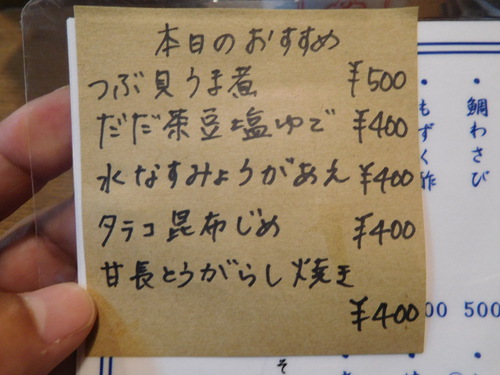 本日のおすすめ
つぶ貝うま煮 ¥500
だだ茶豆塩ゆで ¥400
水なすみょうがあえ ¥400
タラコ昆布じめ ¥400
甘長とうがらし焼き
¥400
・鯛わさび
・もずく酢
00 500
そ